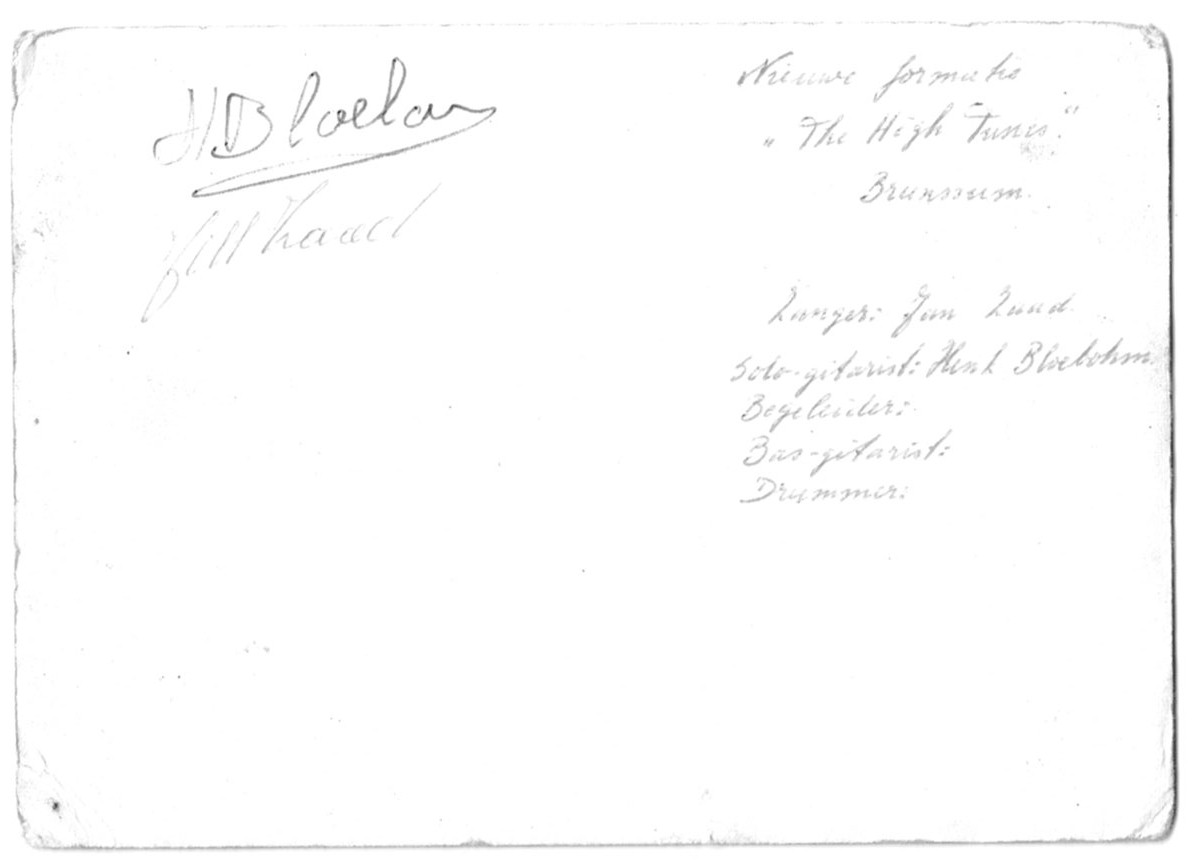 HBloebaum
Nieuwe formatie
„The High Tunes."
Brunssum.
Zanger: Jan Zaad.
Solo-gitarist: Henk Bloebohm.
Begeleider:
Bas-gitarist:
Drummer: